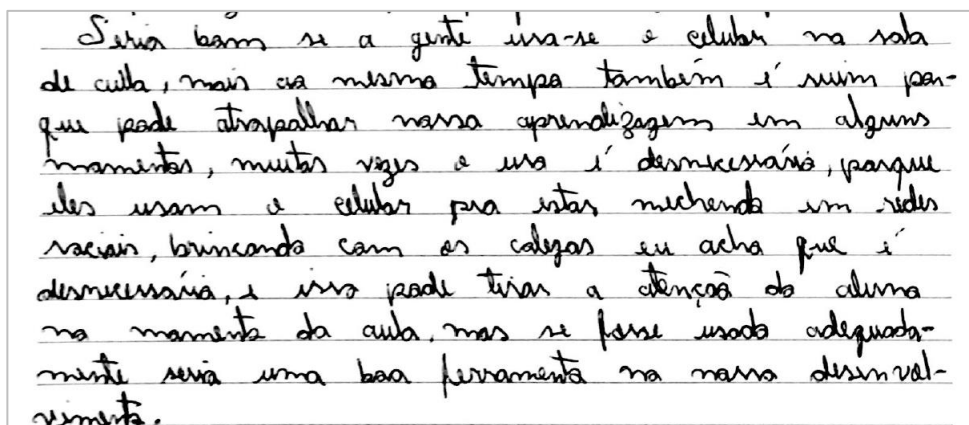 Seria bom se a gente usa-se o celular na sala
de aula, mais ao mesmo tempo também é ruim por-
que pode atrapalhar nossa aprendizagem em alguns
momentos, muitas vezes o uso é desnecessário, porque
eles usam o celular pra estar mechendo em redes
sociais, brincando com os colegas eu acho que é
desnecessário, e isso pode tirar a atenção do aluno
no momento da aula, mas se fosse usado adequada-
mente seria uma boa ferramenta no nosso desenvol-
vimento.